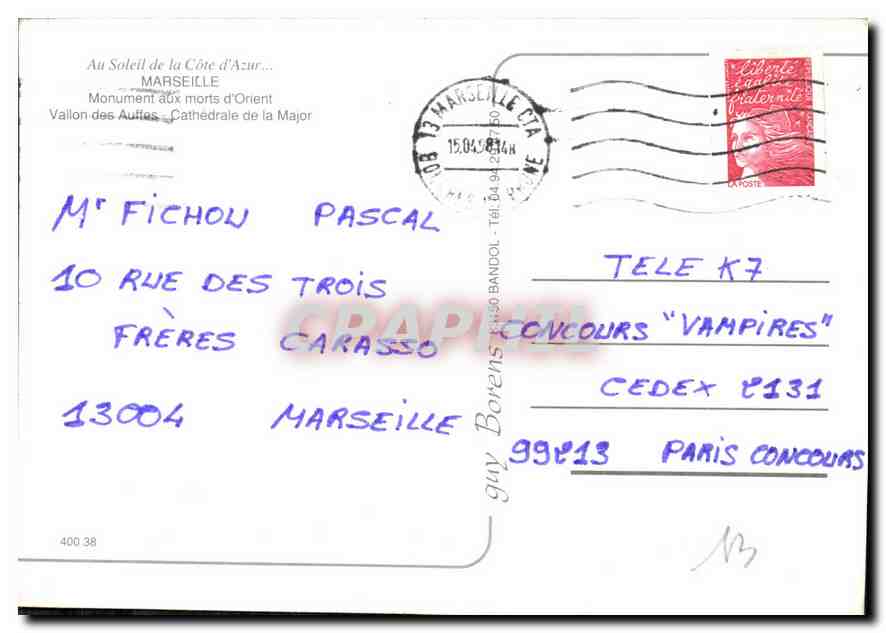 Au Soleil de la Côte d'Azur...
MARSEILLE
Monument aux morts d'Orient
Vallon des Auffes - Cathédrale de la Major
Mr FICHOU PASCAL
10 RUE DES TROIS
FRÈRES CARASSO
13004 MARSEILLE
400 38
guy Borens 83150 BANDOL - Tél. 04.94.29
13 MARSEILLE CTA
15.04.98 14H
BOUCHES DU RHONE
liberté
égalité
fraternité
LA POSTE
TELE K7
CONCOURS "VAMPIRES"
CEDEX 2131
99213 PARIS CONCOURS
CPAPHIL